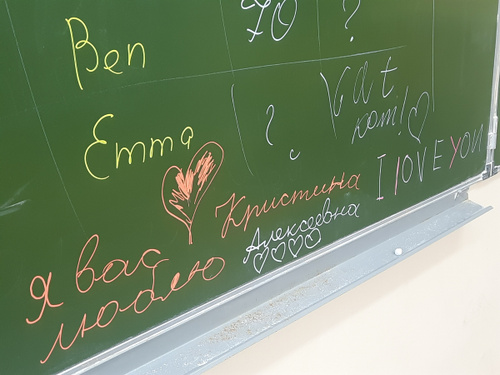 Ben 70 ?
Emma ? Kat
Кристина I lOVE YOU
Алексеевна
Я вас
люблю